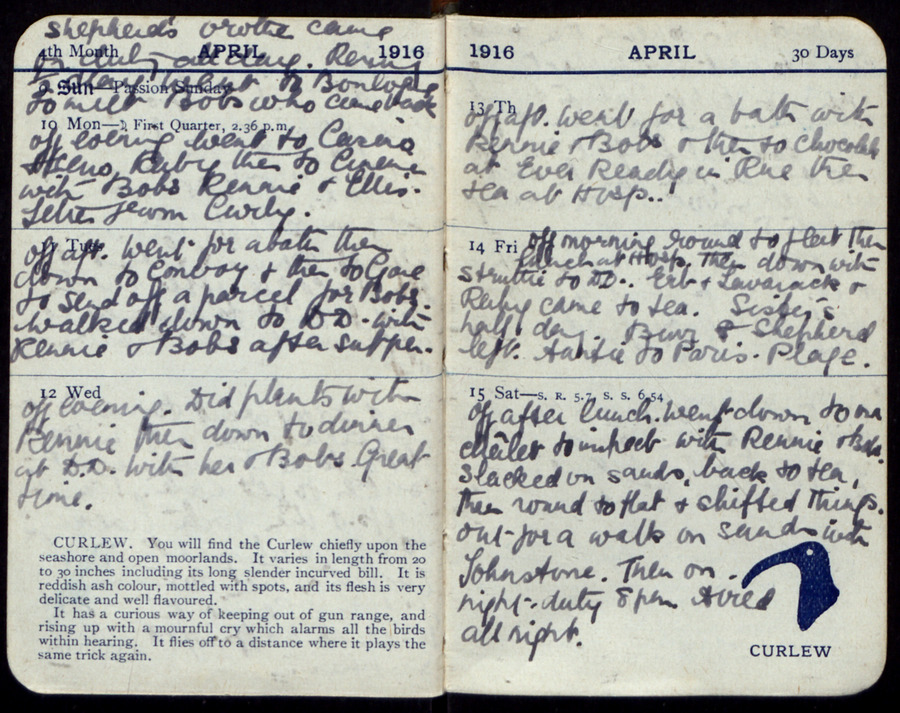 shepherds brother came
4th Month APRIL 1916
off duty all day. Rennie
9 Sun—Passion Sunday
went to Boulogne
to meet Bobs who came back
10 Mon—☽ First Quarter, 2.36 p.m.
off evening went to Casino
Ruby then to Cinema
with Bobs Rennie & Ellis.
Letter from Curly.
11 Tues
off aft. went for a bath then
down to Convoy & then to Gare
to send off a parcel for Bobs.
walked down to D.D. with
Rennie & Bobs after supper.
12 Wed
off evening. Did plants with
Rennie then down to dinner
at D.D. with her & Bobs. Great
time.
CURLEW. You will find the Curlew chiefly upon the
seashore and open moorlands. It varies in length from 20
to 30 inches including its long slender incurved bill. It is
reddish ash colour, mottled with spots, and its flesh is very
delicate and well flavoured.
It has a curious way of keeping out of gun range, and
rising up with a mournful cry which alarms all the birds
within hearing. It flies off to a distance where it plays the
same trick again.
1916 APRIL 30 Days
13 Th
off aft. went for a bath with
Rennie & Bobs & then to chocolate
at Ever Ready in Rue then
tea at Hosp..
14 Fri off morning round to flat then
lunch at Hosp. Then down with
Struttie to D.D.. Erb & Lavarack &
Ruby came to tea. Sister's
half day. Bunz & Shepherd
left. Auntie to Paris-Plage.
15 Sat—S. R. 5.7, S. S. 6.54
off after lunch. went down to ma
châlet to inspect with Rennie & Bobs.
Slacked on sands, back to tea,
then round to flat & shifted things.
out for a walk on sands with
Johnstone. Then on
night-duty 8 pm
all right.
CURLEW